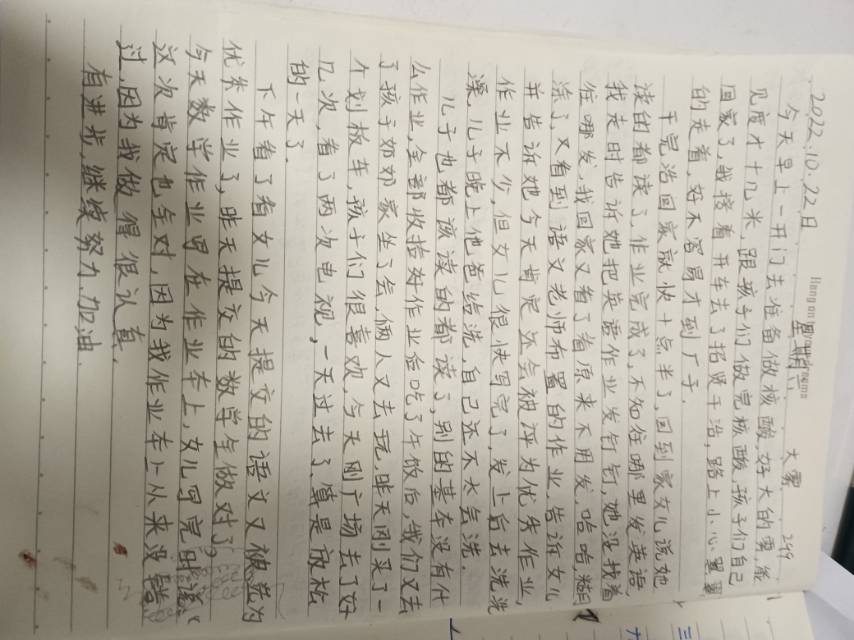 2022.10.22日 星期六 大雾 249
Hang on
今天早上一开门去准备做核酸,好大的雾,能
见度才十几米,跟孩子们做完核酸,孩子们自己
回家了,我接着开车去了招贤干活,路上小心翼翼
的走着,好不容易才到厂子.
干完活回家就快十点半了,回到家女儿说她
读的都读了,作业完成了,不知往哪里发英语,
我走时告诉她把英语作业发钉钉,她没找着
往哪发,我回家又看了看原来不用发,哈哈,糊
涂了,又看到语文老师布置的作业,告诉女儿
并告诉她今天肯定还会被评为优失作业,
作业不少,但女儿很快写完了,发上后去洗洗
澡,儿子晚上他爸给洗,自己还不大会洗.
儿子也都该读的都读了,别的基本没有什
么作业,全部收拾好作业后吃了午饭后,我们又去
了孩子奶奶家坐了会,俩人又去玩,昨天刚买了一
个划板车,孩子们很喜欢,今天刚广场去了好
几次,看了两次电视,一天过去了,算是放松
的一天了.
下午看了看女儿今天提交的语文又被立为
优失作业了,昨天提交的数学全做对了,
今天数学作业写在作业本上,女儿写完时说“
这次肯定也全对,因为我作业本上从来没错
过,因为我做得很认真.
有进步,继续努力,加油.